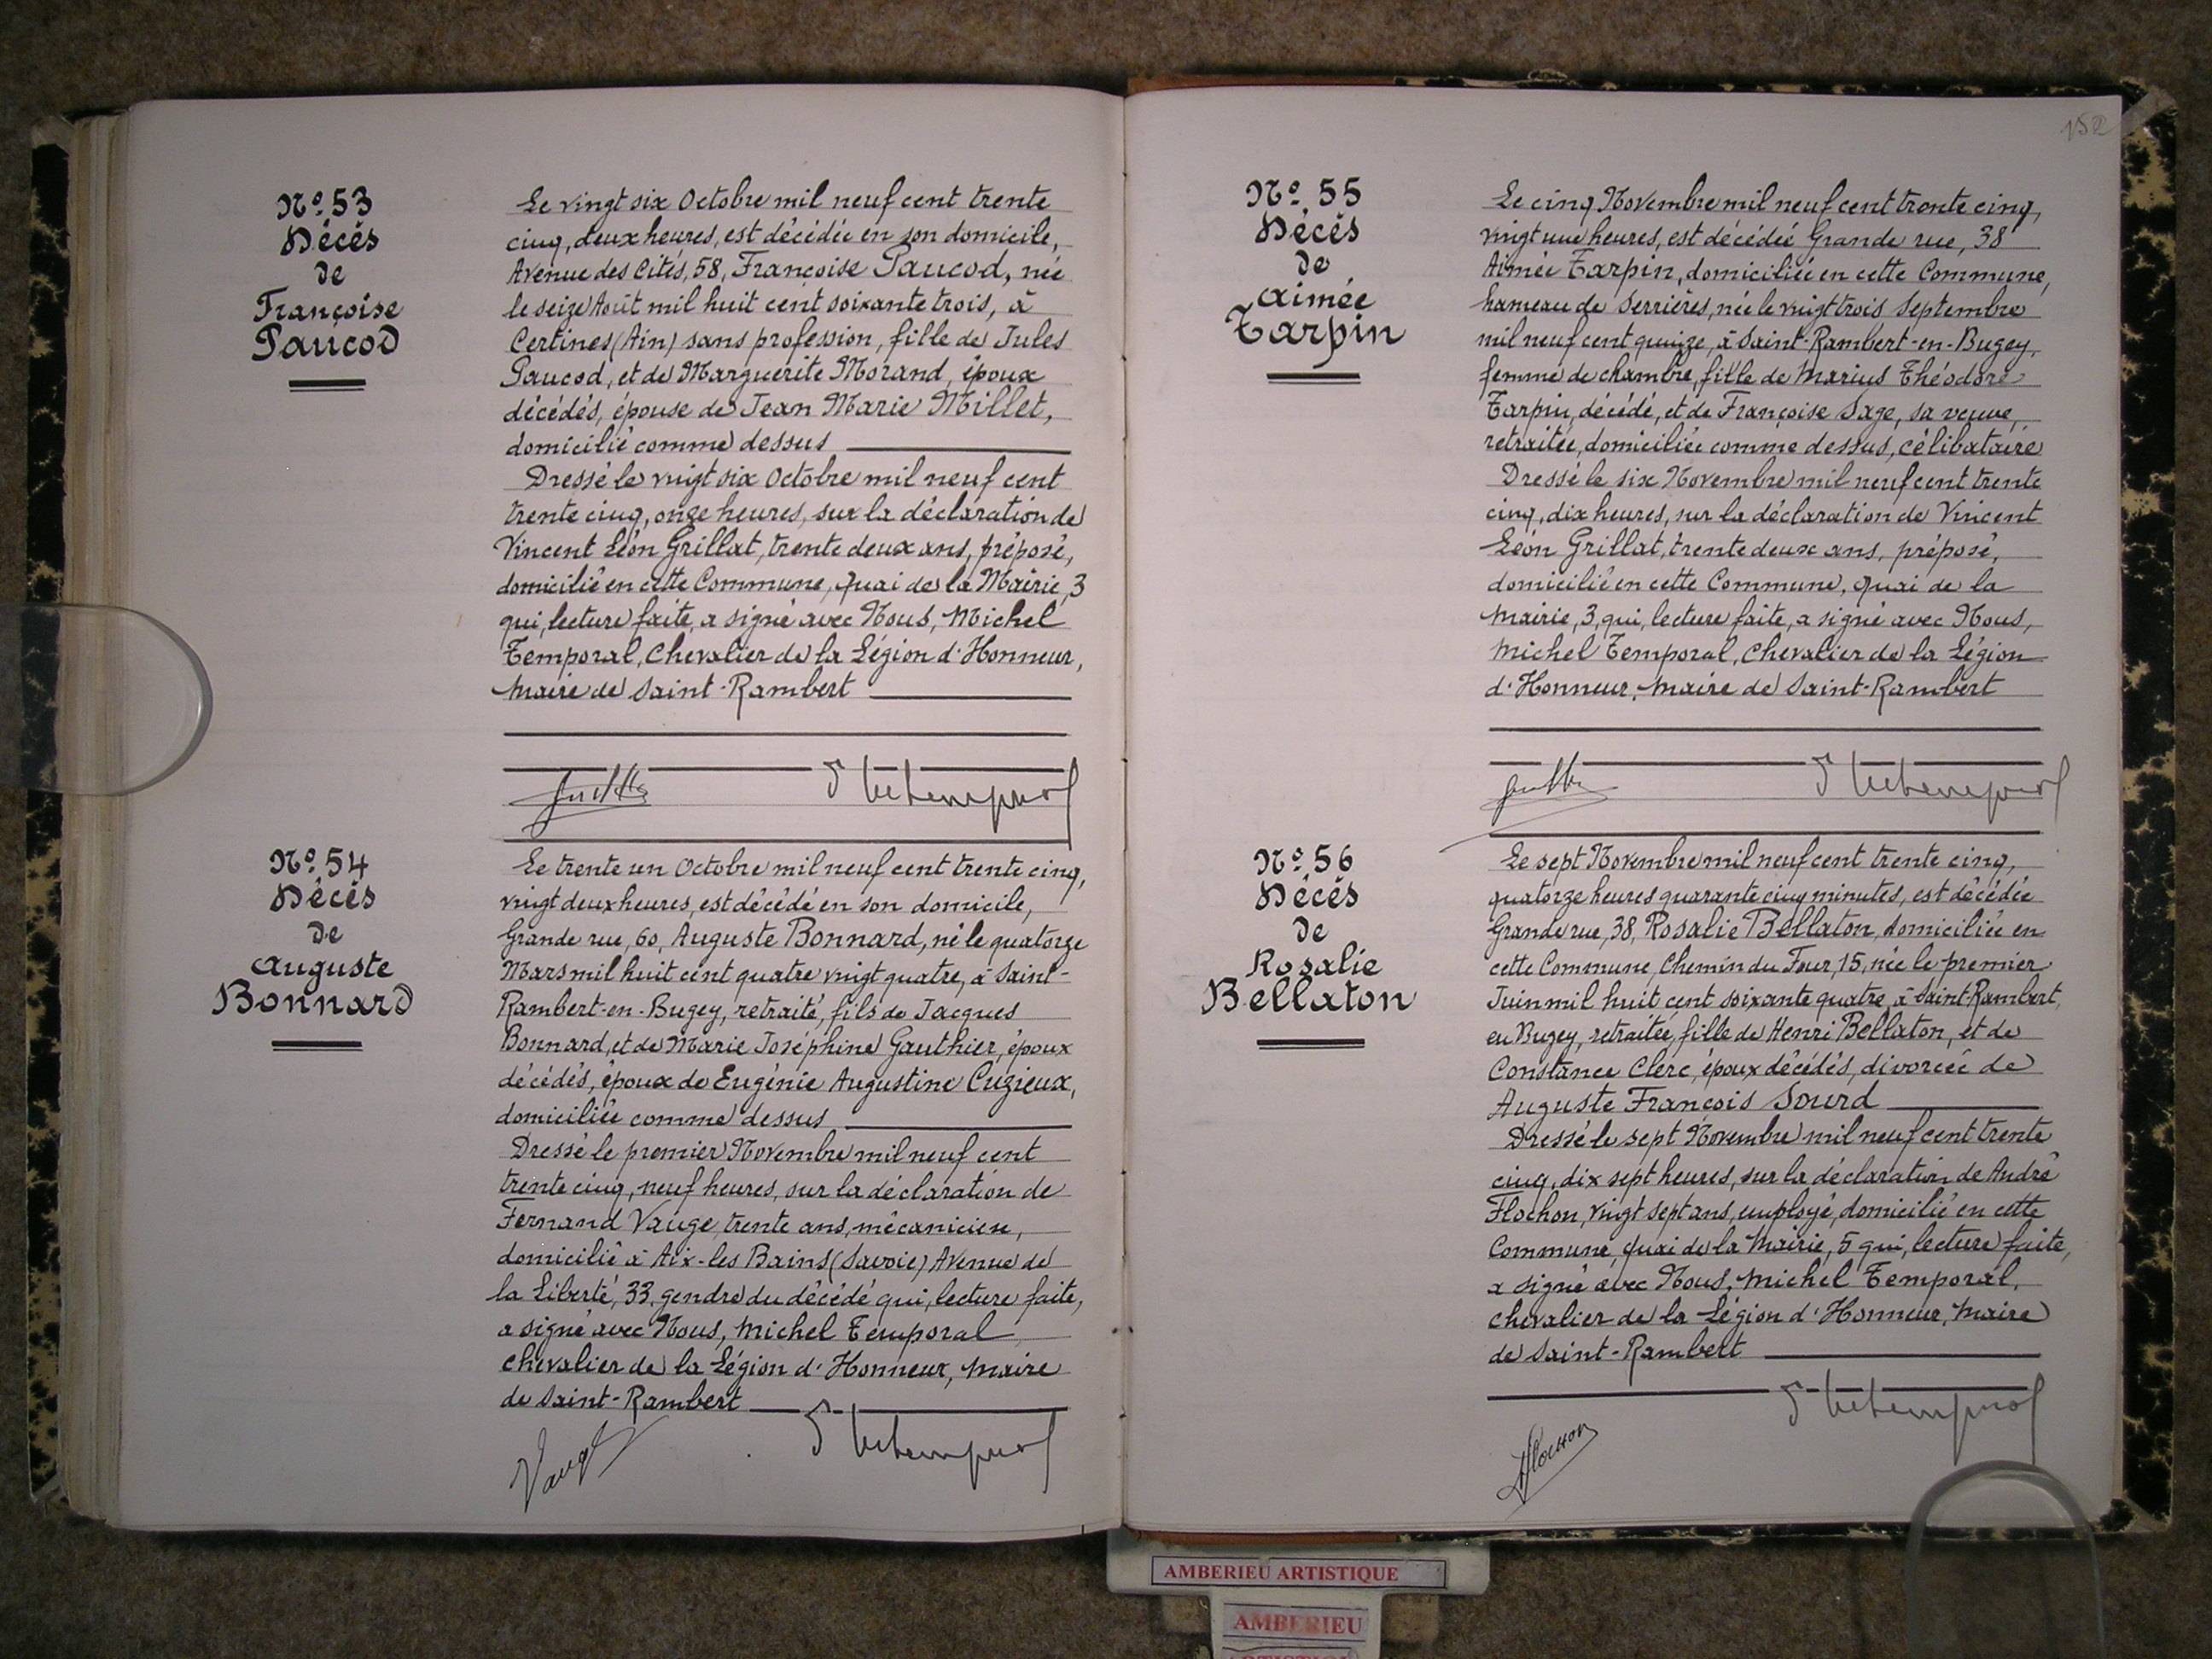 152
N° 53
Décès
de
Françoise
Paucod
Le vingt six Octobre mil neuf cent trente
cinq, deux heures, est décédée en son domicile,
Avenue des Cités, 58, Françoise Paucod, née
le seize Août mil huit cent soixante trois, à
Certines (Ain) sans profession, fille de Jules
Paucod, et de Marguerite Morand, époux
décédés, épouse de Jean Marie Millet,
domicilié comme dessus
Dressé le vingt six Octobre mil neuf cent
trente cinq, onze heures, sur la déclaration de
Vincent Léon Grillat, trente deux ans, préposé,
domicilié en cette Commune, quai de la Mairie, 3
qui, lecture faite, a signé avec Nous, Michel
Temporal, Chevalier de la Légion d'Honneur,
Maire de Saint-Rambert
N° 54
Décès
de
Auguste
Bonnard
Le trente un Octobre mil neuf cent trente cinq,
vingt deux heures, est décédé en son domicile,
Grande rue, 60, Auguste Bonnard, né le quatorze
Mars mil huit cent quatre vingt quatre, à Saint-
Rambert-en-Bugey, retraité, fils de Jacques
Bonnard, et de Marie Joséphine Gauthier, époux
décédés, époux de Eugénie Augustine Cuzieux,
domiciliée comme dessus
Dressé le premier Novembre mil neuf cent
trente cinq, neuf heures, sur la déclaration de
Fernand Vauge, trente ans, mécanicien,
domicilié à Aix-les Bains (Savoie) Avenue de
la Liberté, 33, gendre du décédé qui, lecture faite,
a signé avec Nous, Michel Temporal
Chevalier de la Légion d'Honneur, Maire
de Saint-Rambert
Vauge
N° 55
Décès
de
Aimée
Tarpin
Le cinq Novembre mil neuf cent trente cinq,
vingt une heures, est décédée Grande rue, 38
Aimée Tarpin, domiciliée en cette Commune,
hameau de Serrières, née le vingt trois Septembre
mil neuf cent quinze, à Saint-Rambert-en-Bugey,
femme de chambre, fille de Marius Théodore
Tarpin, décédé, et de Françoise Sage, sa veuve,
retraitée, domiciliée comme dessus, célibataire
Dressé le six Novembre mil neuf cent trente
cinq, dix heures, sur la déclaration de Vincent
Léon Grillat, trente deux ans, préposé,
domicilié en cette Commune, quai de la
Mairie, 3, qui, lecture faite, a signé avec Nous,
Michel Temporal, Chevalier de la Légion
d'Honneur, Maire de Saint-Rambert
N° 56
Décès
de
Rosalie
Bellaton
Le sept Novembre mil neuf cent trente cinq,
quatorze heures quarante cinq minutes, est décédée
Grande rue, 38, Rosalie Bellaton, domiciliée en
cette Commune, Chemin du Four, 15, née le premier
Juin mil huit cent soixante quatre, à Saint-Rambert,
en Bugey, retraitée, fille de Henri Bellaton, et de
Constance Clerc, époux décédés, divorcée de
Auguste François Sourd
Dressé le sept Novembre mil neuf cent trente
cinq, dix sept heures, sur la déclaration de André
Flochon, vingt sept ans, employé, domicilié en cette
Commune, quai de la Mairie, 5 qui, lecture faite,
a signé avec Nous, Michel Temporal,
Chevalier de la Légion d'Honneur, Maire
de Saint-Rambert
Flochon
AMBERIEU ARTISTIQUE
AMBERIEU
ARTISTIQUE